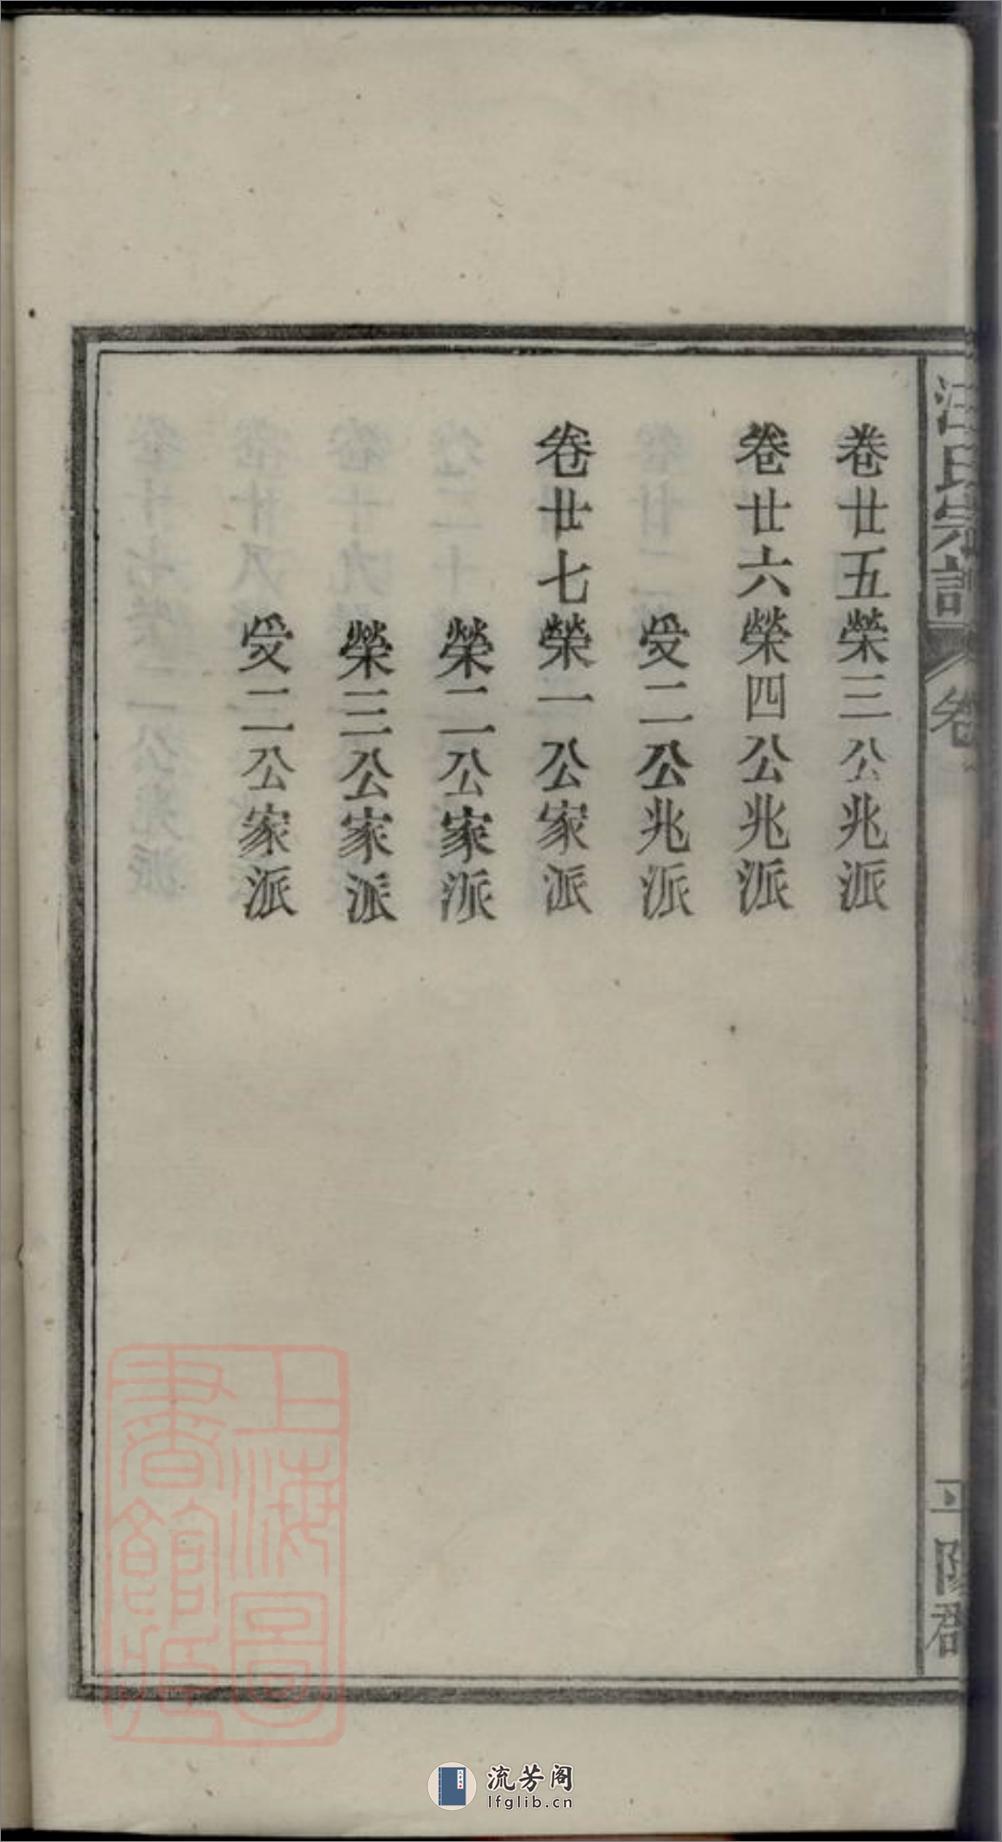 汪氏宗譜
卷
平陽郡
卷廿五榮三公兆派
卷廿六榮四公兆派
受二公兆派
卷廿七榮一公家派
榮二公家派
榮三公家派
受二公家派
上海圖書館藏
流芳阁
lfglib.cn